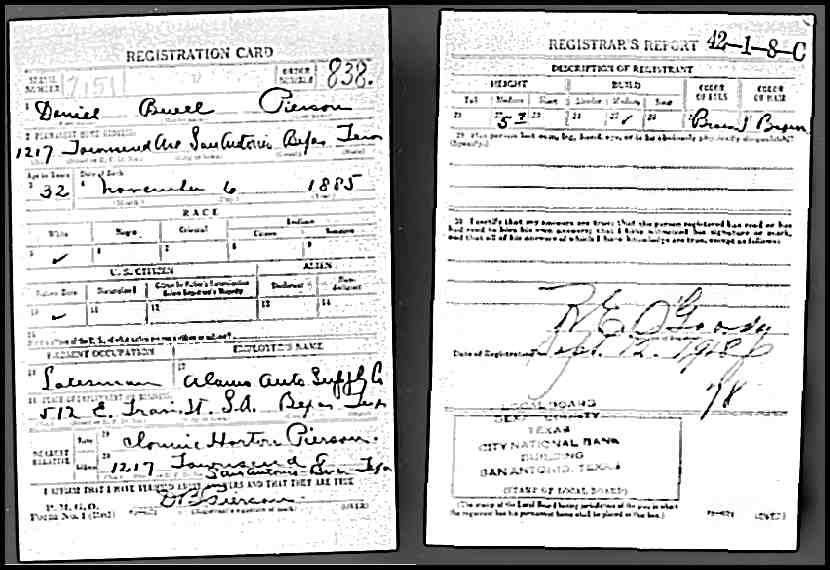 REGISTRATION CARD
SERIAL NUMBER 7151 ORDER NUMBER 838.
1 Daniel Buell Pierson
2 PERMANENT HOME ADDRESS
1217 Townsend Ave San Antonio Bexar Texas
Age in Years Date of Birth
3 32 4 November 6 1885
(Month.) (Day.) (Year.)
RACE
White Negro Oriental Indian
Citizen
5 ✓ 6 7 8 9
U. S. CITIZEN ALIEN
Native Born Naturalized Citizen by Father's Naturalization Before Registrant's Majority Declarant Non-declarant
10 ✓ 11 12 13 14
15
PRESENT OCCUPATION EMPLOYER'S NAME
16 Salesman 17 Alamo Auto Supply Co
18 PLACE OF EMPLOYMENT OR BUSINESS
512 E. Trav. St. S.A. Bexar Texas
NEAREST RELATIVE Name 19 Horton Pierson.
Address 20 1217 Townsend
San Antonio Texas
I AFFIRM THAT I HAVE VERIFIED ABOVE ANSWERS AND THAT THEY ARE TRUE
P. M. G. O.
Form No. 1 (Red) D B Pierson
(Registrant's signature or mark) (OVER)
REGISTRAR'S REPORT 42-1-8-C
DESCRIPTION OF REGISTRANT
HEIGHT BUILD COLOR OF EYES COLOR OF HAIR
Tall Medium Short Slender Medium Stout
21 22 23 24 25 ✓ 26 27 Brown 28 Brown
29 Has person lost arm, leg, hand, eye, or is he obviously physically disqualified?
(Specify.)
30 I certify that my answers are true; that the person registered has read or has
had read to him his own answers; that I have witnessed his signature or mark,
and that all of his answers of which I have knowledge are true, except as follows:
Date of Registration Sept. 12. 1918
LOCAL BOARD
BEXAR COUNTY
TEXAS
CITY NATIONAL BANK
BUILDING
SAN ANTONIO, TEXAS
(STAMP OF LOCAL BOARD)
(The stamp of the Local Board having jurisdiction of the area in which
the registrant has his permanent home shall be placed in this box.)
(OVER)